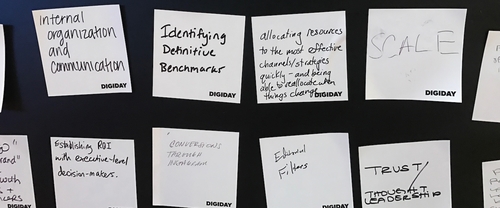 Internal
organization
and
communication
DIGIDAY
Identifying
Definitive
Benchmarks
DIGIDAY
allocating resources
to the most effective
channels/strategies
quickly - and being
able to reallocate when
things change
DIGIDAY
SCALE
DIGIDAY
Establishing ROI
with executive-level
decision-makers.
CONVERSIONS
THROUGH
INSTAGRAM
DIGIDAY
Editorial
Filters
TRUST/
THOUGHT
LEADERSHIP
DIGIDAY